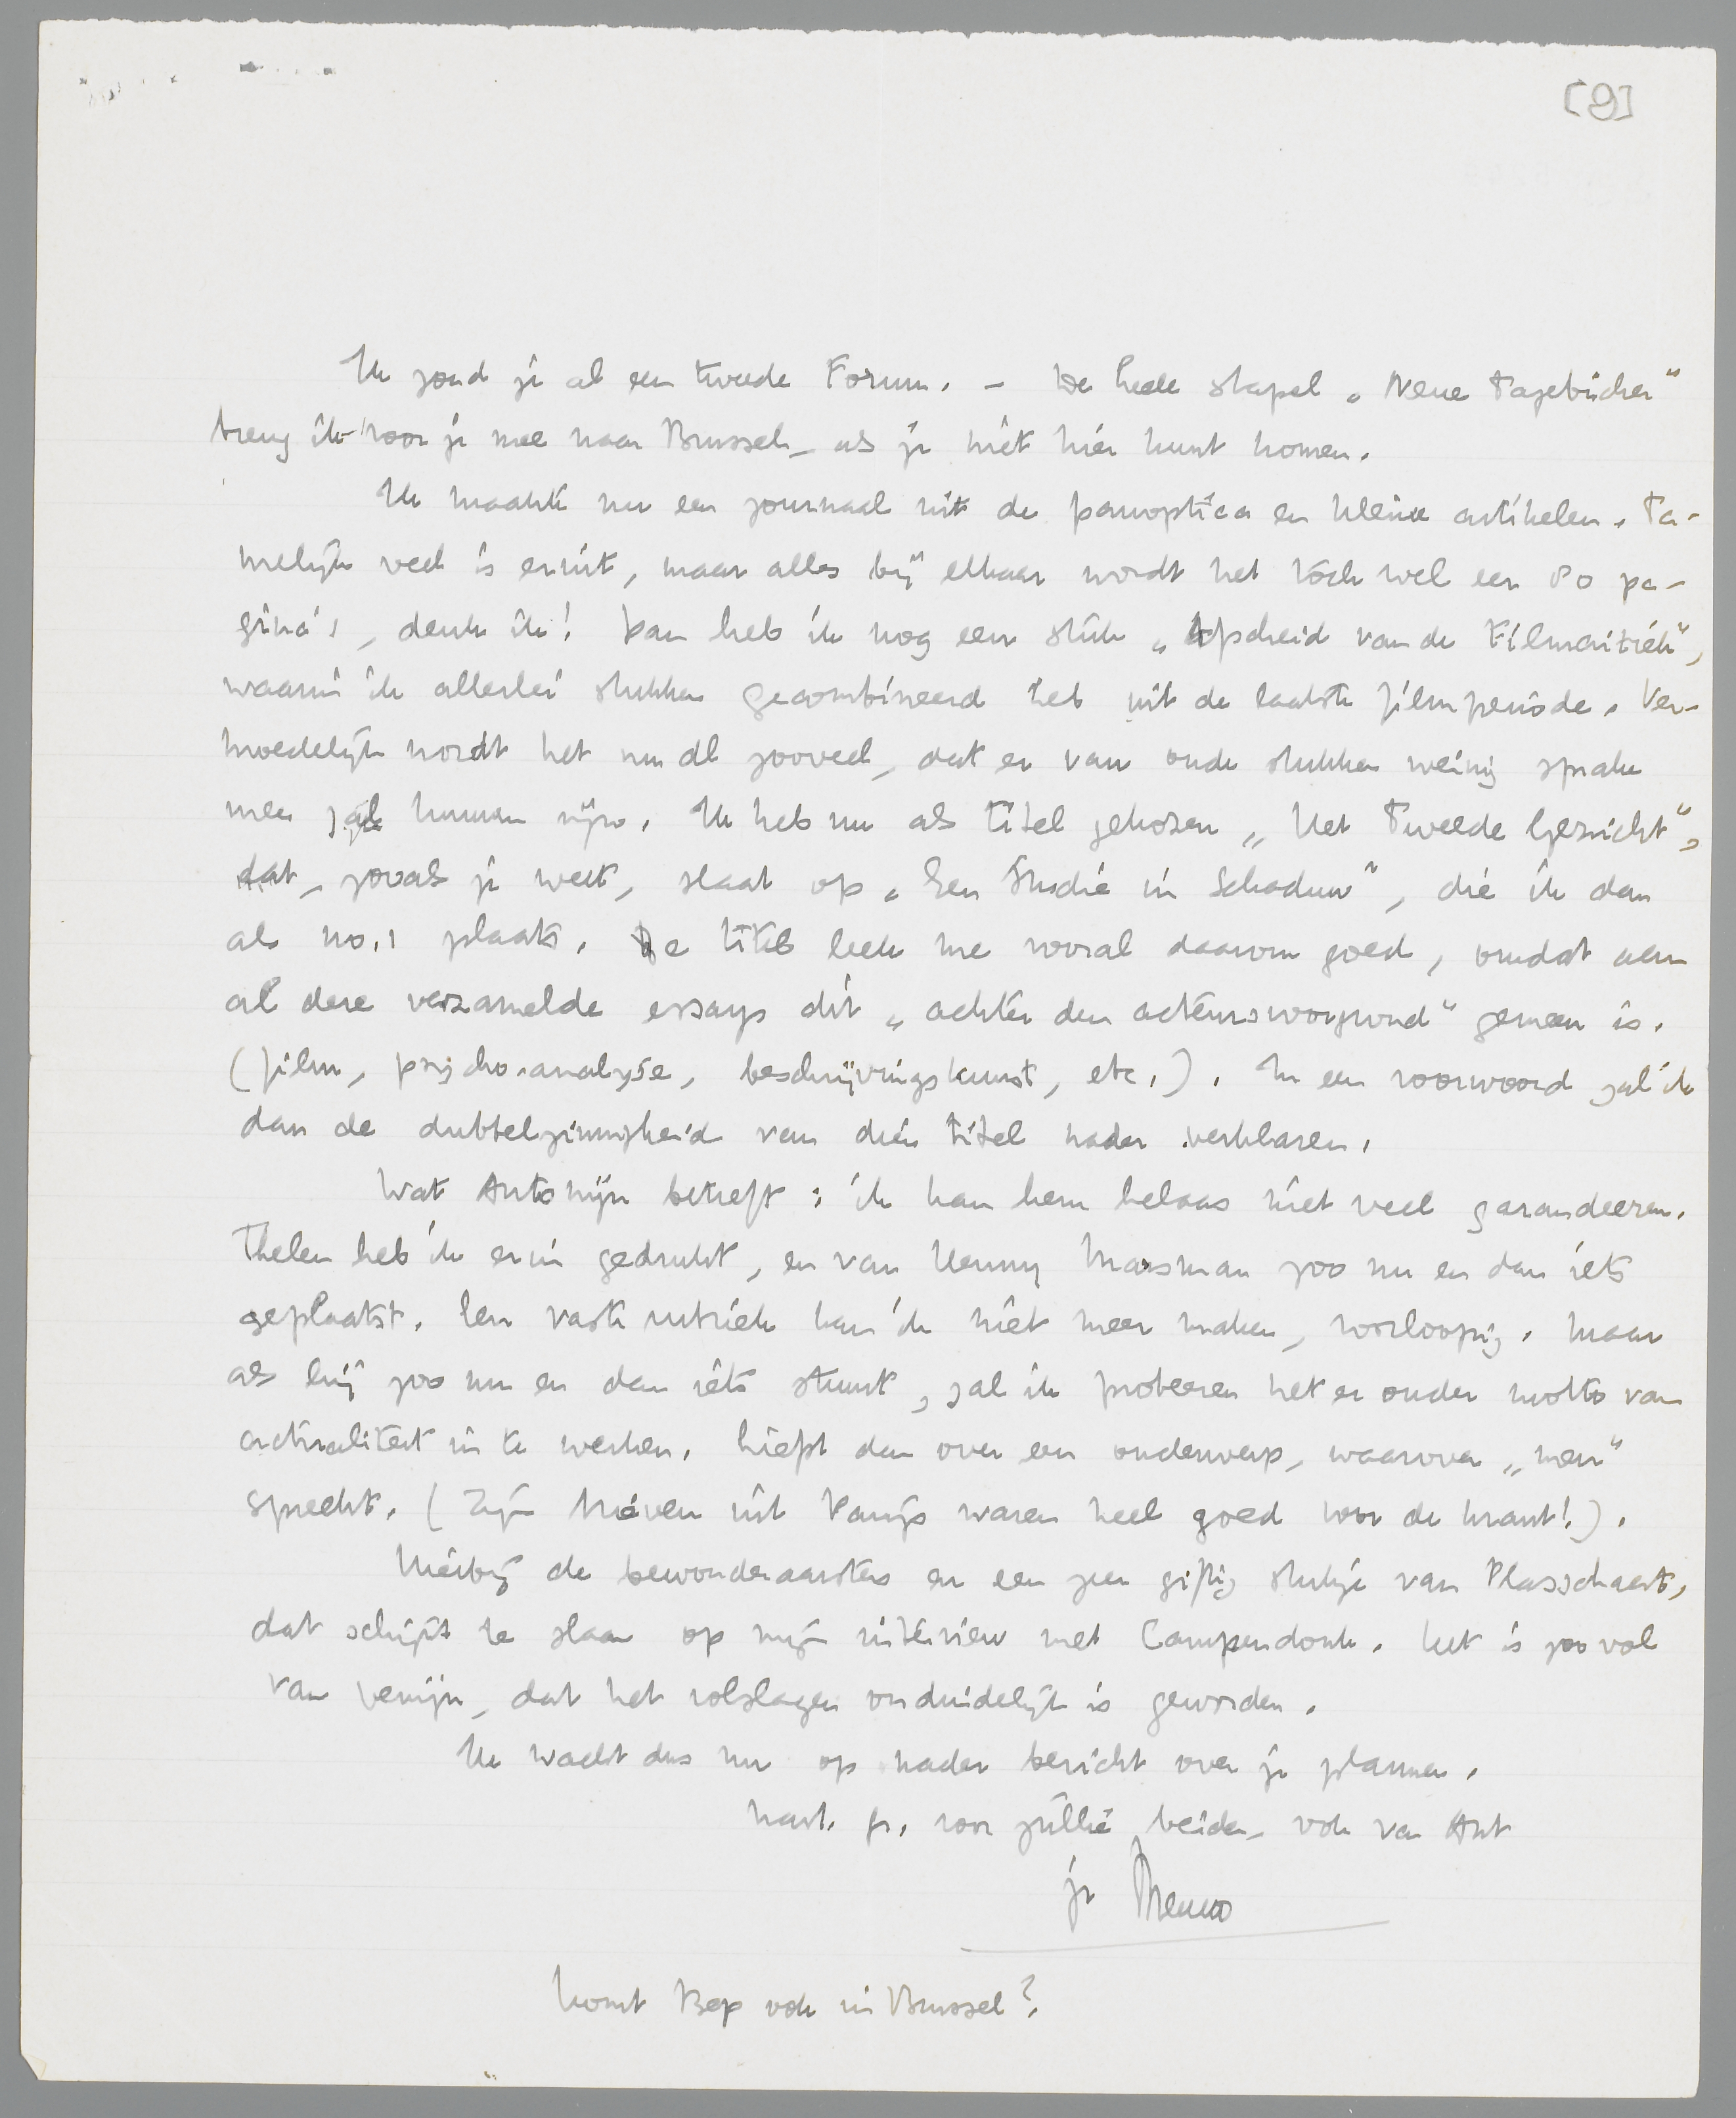 [9]
Ik zond je al een tweede Forum. - De heele stapel „Neue Tagebücher"
breng ik voor je mee naar Brussel, als je niet hier kunt komen.
Ik maakte nu een journaal uit de panoptica en kleine artikelen. Ta-
melijk veel is eruit, maar alles bij elkaar wordt het tòch wel een 80 pa-
gina's, denk ik! Dan heb ik nog een stuk „Afscheid van de Filmcritiek",
waarin ik allerlei stukken gecombineerd heb uit de laatste filmperiode. Ver-
moedelijk wordt het nu àl zooveel, dat er van oude stukken weinig sprake
meer zal kunnen zijn. Ik heb nu als titel gekozen „Het Tweede Gezicht",
dat, zooals je weet, slaat op „Een Studie in Schaduw", die ik dan
als no. 1 plaats. De titel leek me vooral daarom goed, omdat aan
al deze verzamelde essays dit „achter den acteursvoorgrond" gemeen is.
(film, psycho-analyse, beschrijvingskunst, etc.). In een voorwoord zal ik
dan de dubbelzinnigheid van dien titel nader verklaren.
Wat Antonijn betreft: ik kan hem helaas niet veel garandeeren.
Thelen heb ik erin gedrukt, en van Henny Marsman zoo nu en dan iets
geplaatst. Een vaste rubriek kan ik niet meer maken, voorloopig. Maar
als hij zoo nu en dan iets stuurt, zal ik probeeren het er onder motto van
actualiteit in te werken. Liefst dan over een onderwerp, waarover „men"
spreekt. (Zijn brieven uit Parijs waren heel goed voor de krant!).
Hierbij de bewonderaarsters en een zeer giftig stukje van Plasschaert,
dat schijnt te slaan op mijn interview met Campendonk. Het is zoo vol
van venijn, dat het volslagen onduidelijk is geworden.
Ik wacht dus nu op nader bericht over je plannen.
Hart. gr. voor jullie beiden, ook van Ant
je Menno
Komt Bep ook in Brussel?